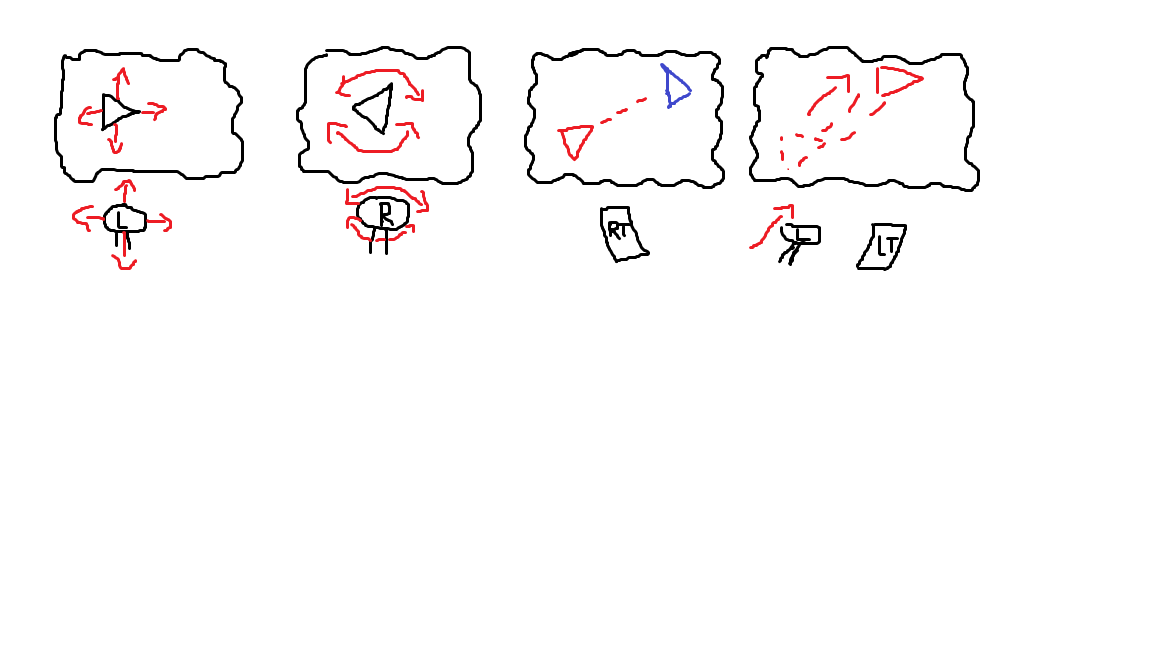 L
R
RT
L
LT